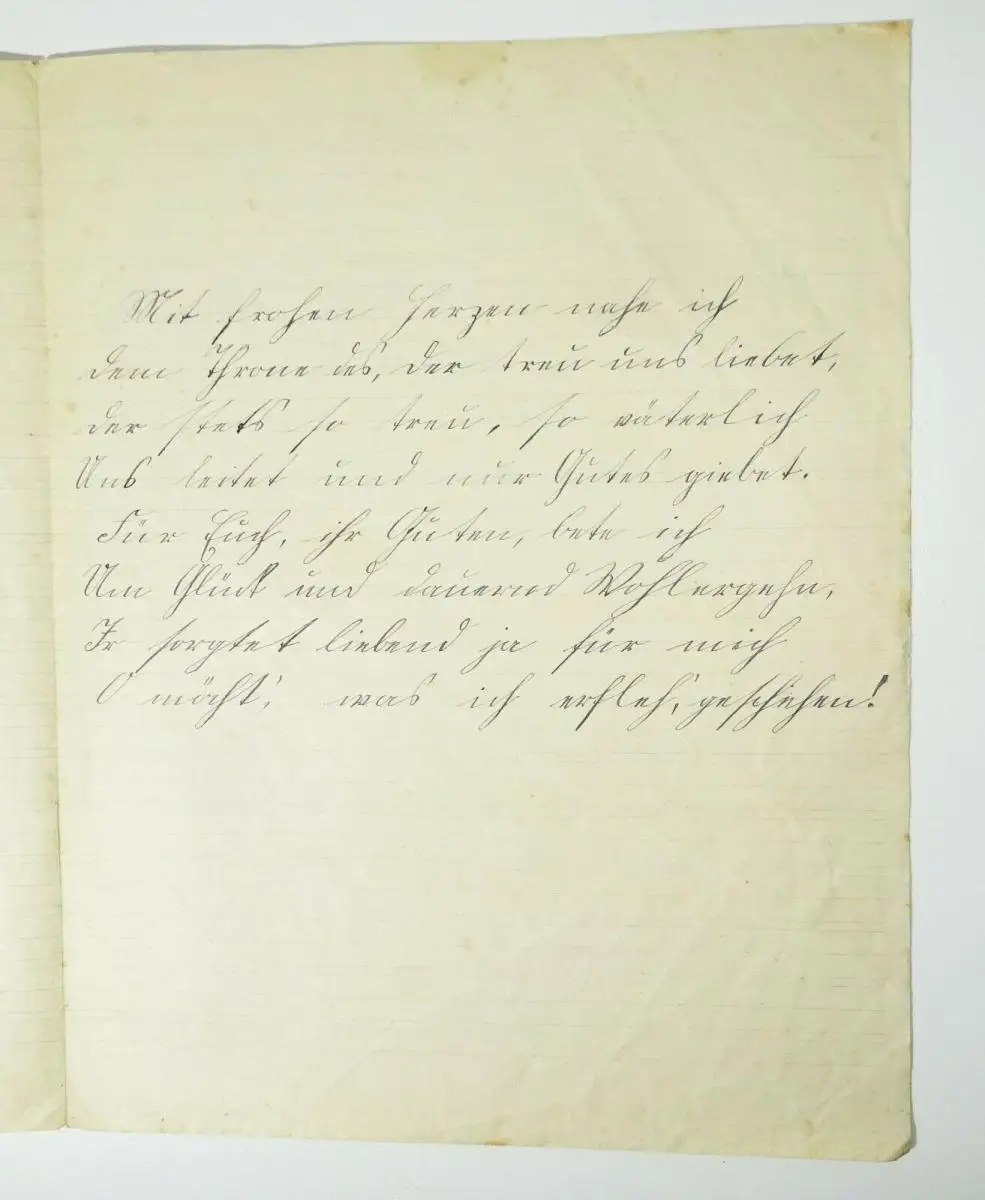 Mit frohen Herzen nahe ich
dem Throne des, der treu uns liebet,
der stets so treu, so väterlich
Uns leitet und nur Gutes giebet.
Für Euch, ihr Guten, bete ich
Um Glück und dauernd Wohlergehn,
Ir sorgtet liebend ja für mich
O möcht', was ich erfleh', geschehen!